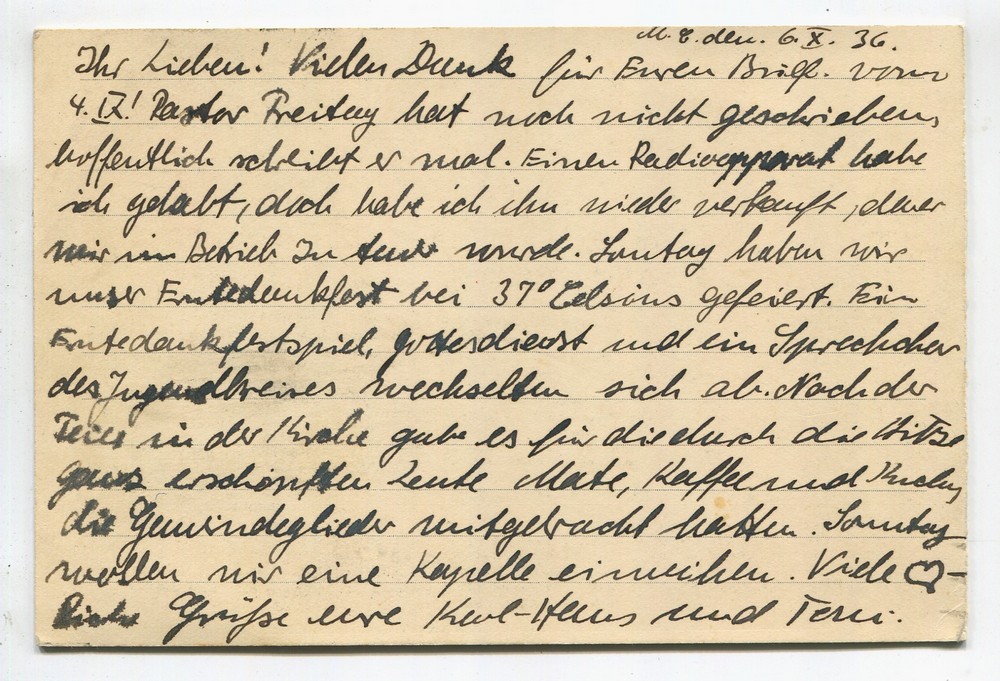 M. C. den. 6. X. 36.
Ihr Lieben! Vielen Dank für Euren Brief. vom
4. IX! Pastor Freitag hat noch nicht geschrieben,
hoffentlich schreibt er mal. Einen Radioapparat habe
ich gehabt, doch habe ich ihn wieder verkauft, da er
mir im Betrieb zu teuer wurde. Sontag haben wir
unser Erntedankfest bei 37° Celsius gefeiert. Ein
Erntedankfestspiel, Gottesdienst und ein Sprechchor
des Jugendkreises wechselten sich ab. Nach der
Feier in der Kirche gabe es für die durch die Hitze
ganz erschöpften Leute Mate, Kaffee und Kuchen,
die Gemeindeglieder mitgebracht hatten. Sonntag
wollen wir eine Kapelle einweihen. Viele
Grüße eure Karl-Hans und Teni.